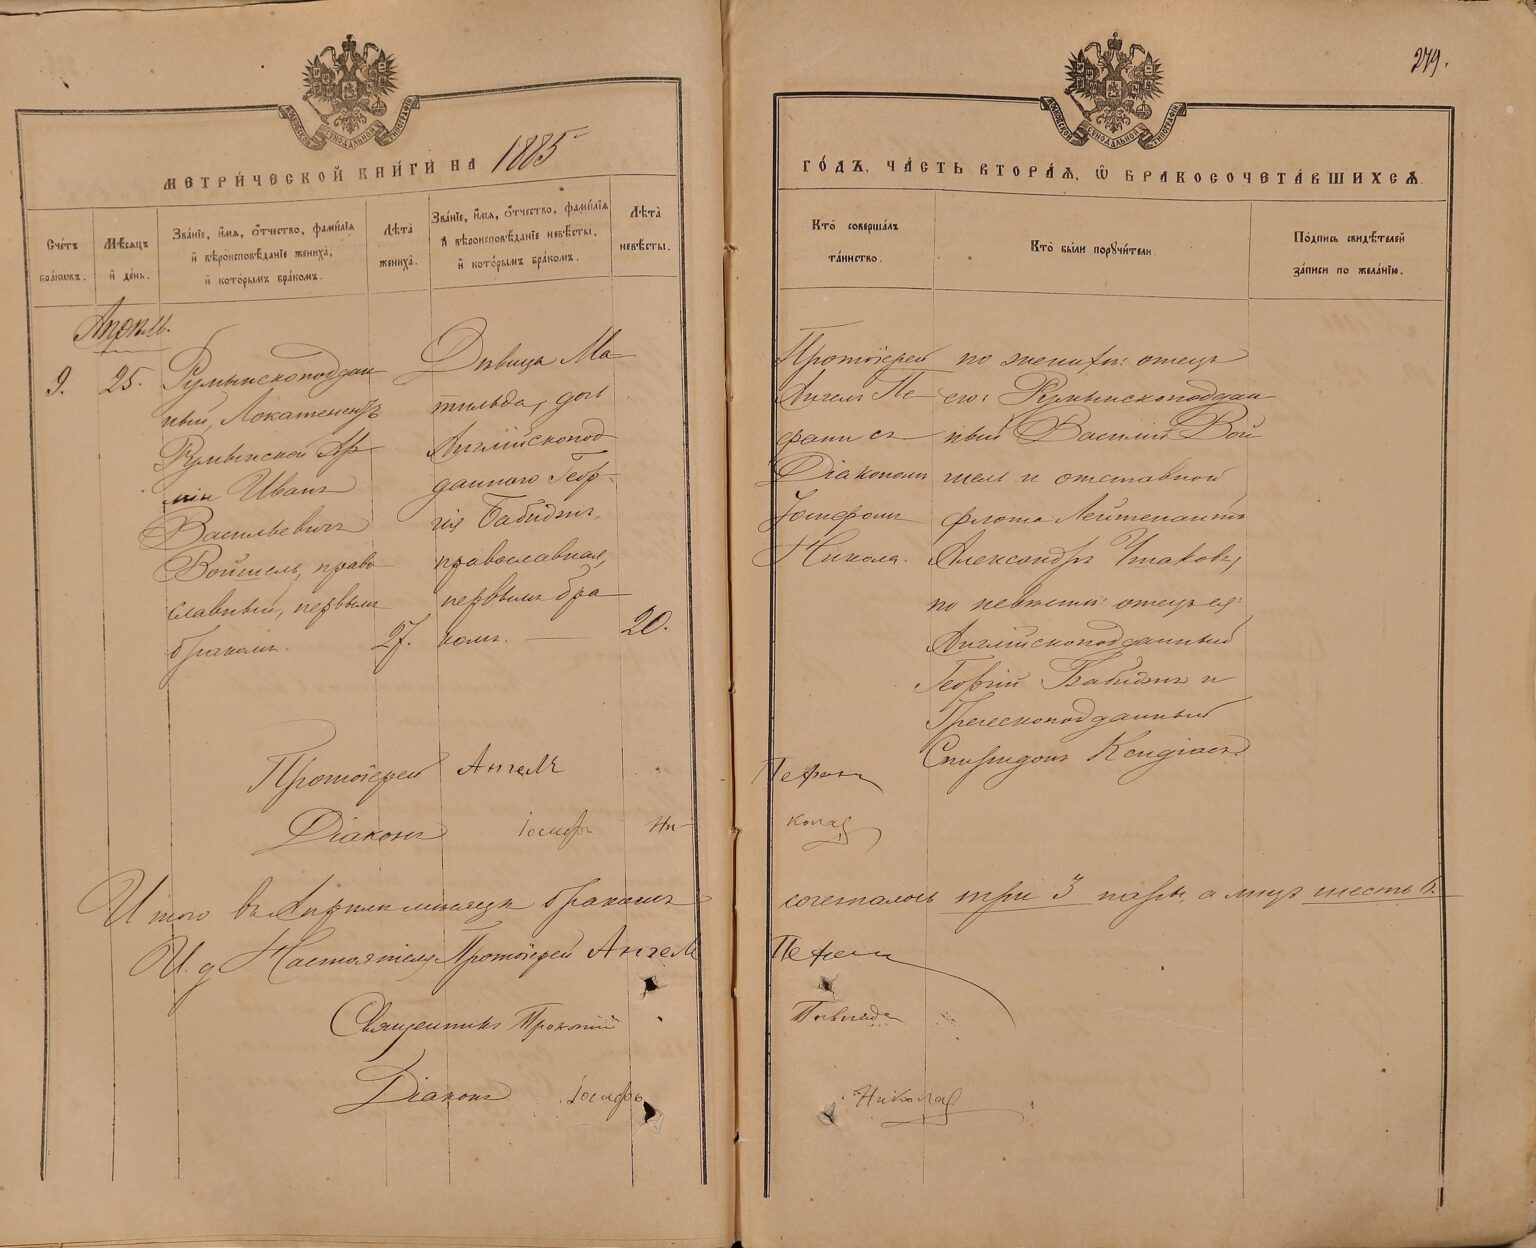 279.
МОСКОВСКОЙ СѴНОДАЛЬНОЙ ТИПОГРАФІИ
МОСКОВСКОЙ СѴНОДАЛЬНОЙ ТИПОГРАФІИ
МЕТРИ́ЧЕСКОЙ КНИ́ГИ НА 1885
ГО́ДЪ, ЧА́СТЬ ВТОРА́Ѧ, Ѽ БРАКОСОЧЕТА́ВШИХСѦ.
Сче́тъ бра́кѡвъ.
Мѣ́сѧцъ й де́нь.
Зва́нїе, и́мѧ, ѻ́тчество, фами́лїѧ
й вѣроисповѣ́данїе жениха̀,
й кото́рымъ бра́комъ.
Лѣ́та жениха̀.
Зва́нїе, и́мѧ, ѻ́тчество, фами́лїѧ
й вѣроисповѣ́данїе невѣ́сты,
й кото́рымъ бра́комъ.
Лѣ́та невѣ́сты.
Кто̀ соверша́лъ
та́инство.
Кто̀ бы́ли порꙋчи́тели.
По́дпись свидѣ́телей
за́писи по жела́нїю.
Апрѣль.
9.
25.
Румынскоподдан
ный, Локатененъ
Румынской Ар
міи Иванъ
Васильевичъ
Войнель, право
славный, первымъ
бракомъ.
27.
Дѣвица Ма-
тильда, дочь
Англійскопод
даннаго Геор-
гія Бабиджи,
православная,
первымъ бра
комъ.
20.
Протоіерей
Ангелъ Пе-
фани съ
Діакономъ
Іосифомъ
Никола.
по женихѣ: отецъ
его: Румынскоподдан
ный Василій Вой
нель и отставной
флота Лейтенантъ
Александръ
по невѣстѣ: отецъ ея:
Англійскоподданный
Георгій Бабиджи и
Греческоподданный
Спиридонъ
Протоіерей Ангелъ Пефани
Діаконъ Іосифъ Ни-колаѣ
Итого въ Апрѣлѣ мѣсяцѣ бракомъ сочеталось три 3 пары, а лицъ шесть 6.
И. д. Настоятеля Протоіерей Ангелъ Пефани
Священникъ Прокопій
Діаконъ Іосифъ Николаѣ